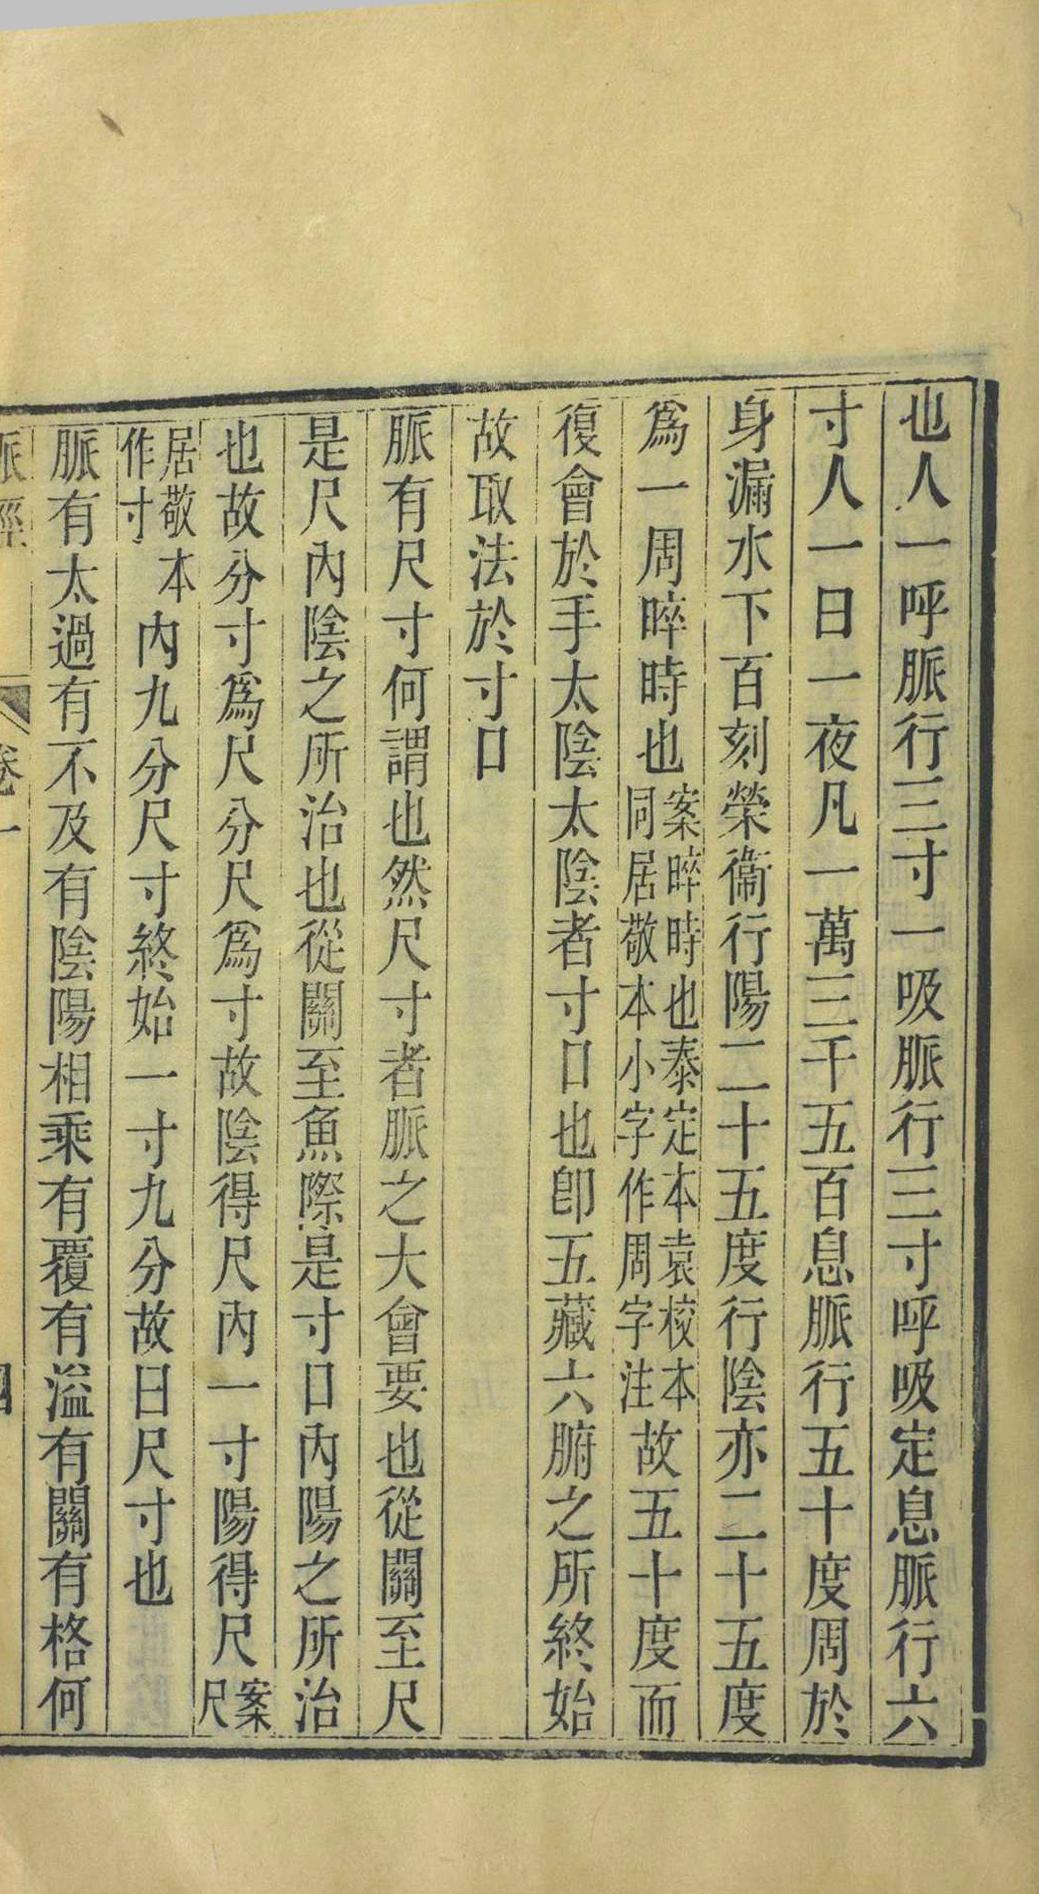 也人一呼脈行三寸一吸脈行三寸呼吸定息脈行六
寸人一日一夜凡一萬三千五百息脈行五十度周於
身漏水下百刻榮衞行陽二十五度行陰亦二十五度
爲一周晬時也案晬時也泰定本袁校本同居敬本小字作周字注故五十度而
復會於手太陰太陰者寸口也卽五藏六腑之所終始
故取法於寸口
脈有尺寸何謂也然尺寸者脈之大會要也從關至尺
是尺內陰之所治也從關至魚際是寸口內陽之所治
也故分寸爲尺分尺爲寸故陰得尺內一寸陽得尺案尺
居敬本作寸內九分尺寸終始一寸九分故曰尺寸也
脈有太過有不及有陰陽相乘有覆有溢有關有格何
脈經 卷一 四